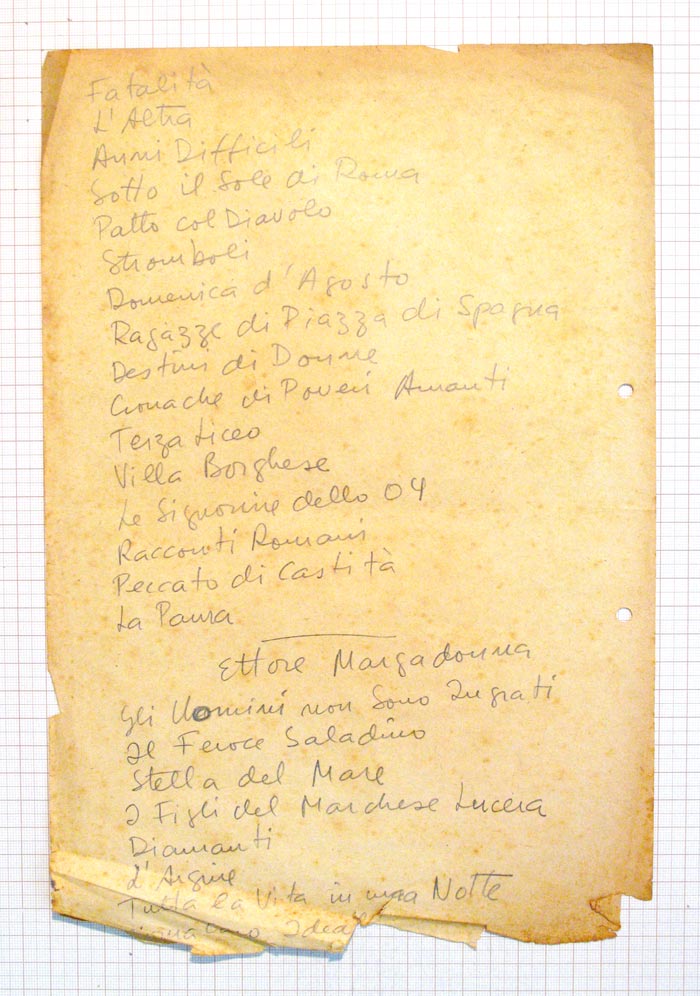 Fatalità
L'Altra
Anni Difficili
Sotto il Sole di Roma
Patto col Diavolo
Stromboli
Domenica d'Agosto
Ragazze di Piazza di Spagna
Destini di Donne
Cronache di Poveri Amanti
Terza Liceo
Villa Borghese
Le Signorine dello 04
Racconti Romani
Peccato di Castità
La Paura
Ettore Margadonna
Gli Uomini non Sono Ingrati
Il Feroce Saladino
Stella del Mare
I Figli del Marchese Lucera
Diamanti
L'Argine
Tutta la Vita in una Notte
Ideal